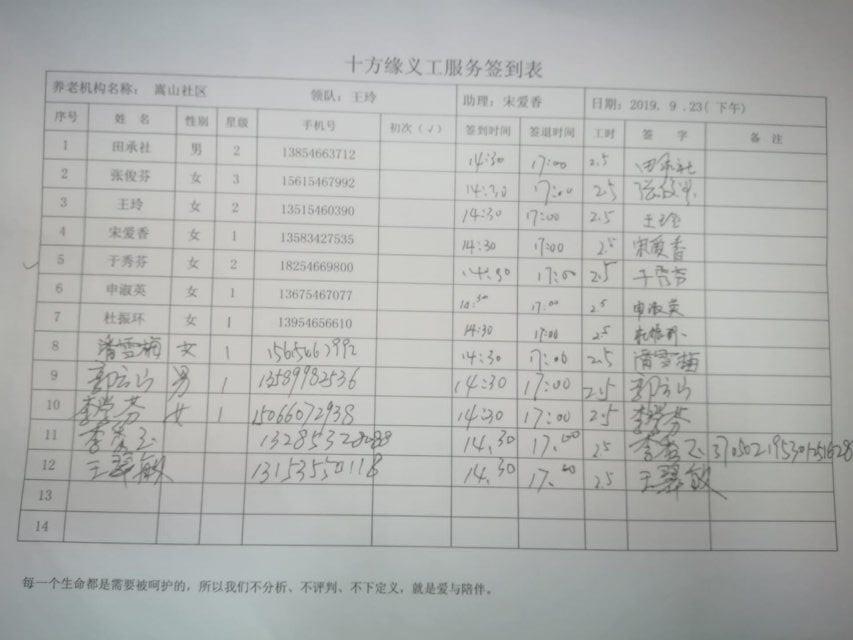 十方缘义工服务签到表
养老机构名称： 嵩山社区 领队：王玲 助理：宋爱香 日期：2019. 9 .23( 下午)
序号 姓 名 性别 星级 手机号 初次（√） 签到时间 签退时间 工时 签 字 备 注
1 田承社 男 2 13854663712 14:30 17:00 2.5 田承社
2 张俊芬 女 3 15615467992 14:30 17:00 25 张俊芬
3 王玲 女 2 13515460390 14:30 17:00 2.5 王玲
4 宋爱香 女 1 13583427535 14:30 17:00 25 宋爱香
5 于秀芬 女 2 18254669800 14:30 17:00 2.5 于秀芬
6 申淑英 女 1 13675467077 14:30 17:00 25 申淑英
7 杜振环 女 1 13954656610 14:30 17:00 25 杜振环
8 潘雪梅 女 1 14:30 17:00 2.5 潘雪梅
9 郭云山 男 1 13589982536 14:30 17:00 2.5 郭云山
10 女 1 15066072938 14:30 17:00 25
11 14.30 17.00 25
12 王翠敏 13153550118 14.30 17.00 2.5 王翠敏
13
14
每一个生命都是需要被呵护的，所以我们不分析、不评判、不下定义，就是爱与陪伴。